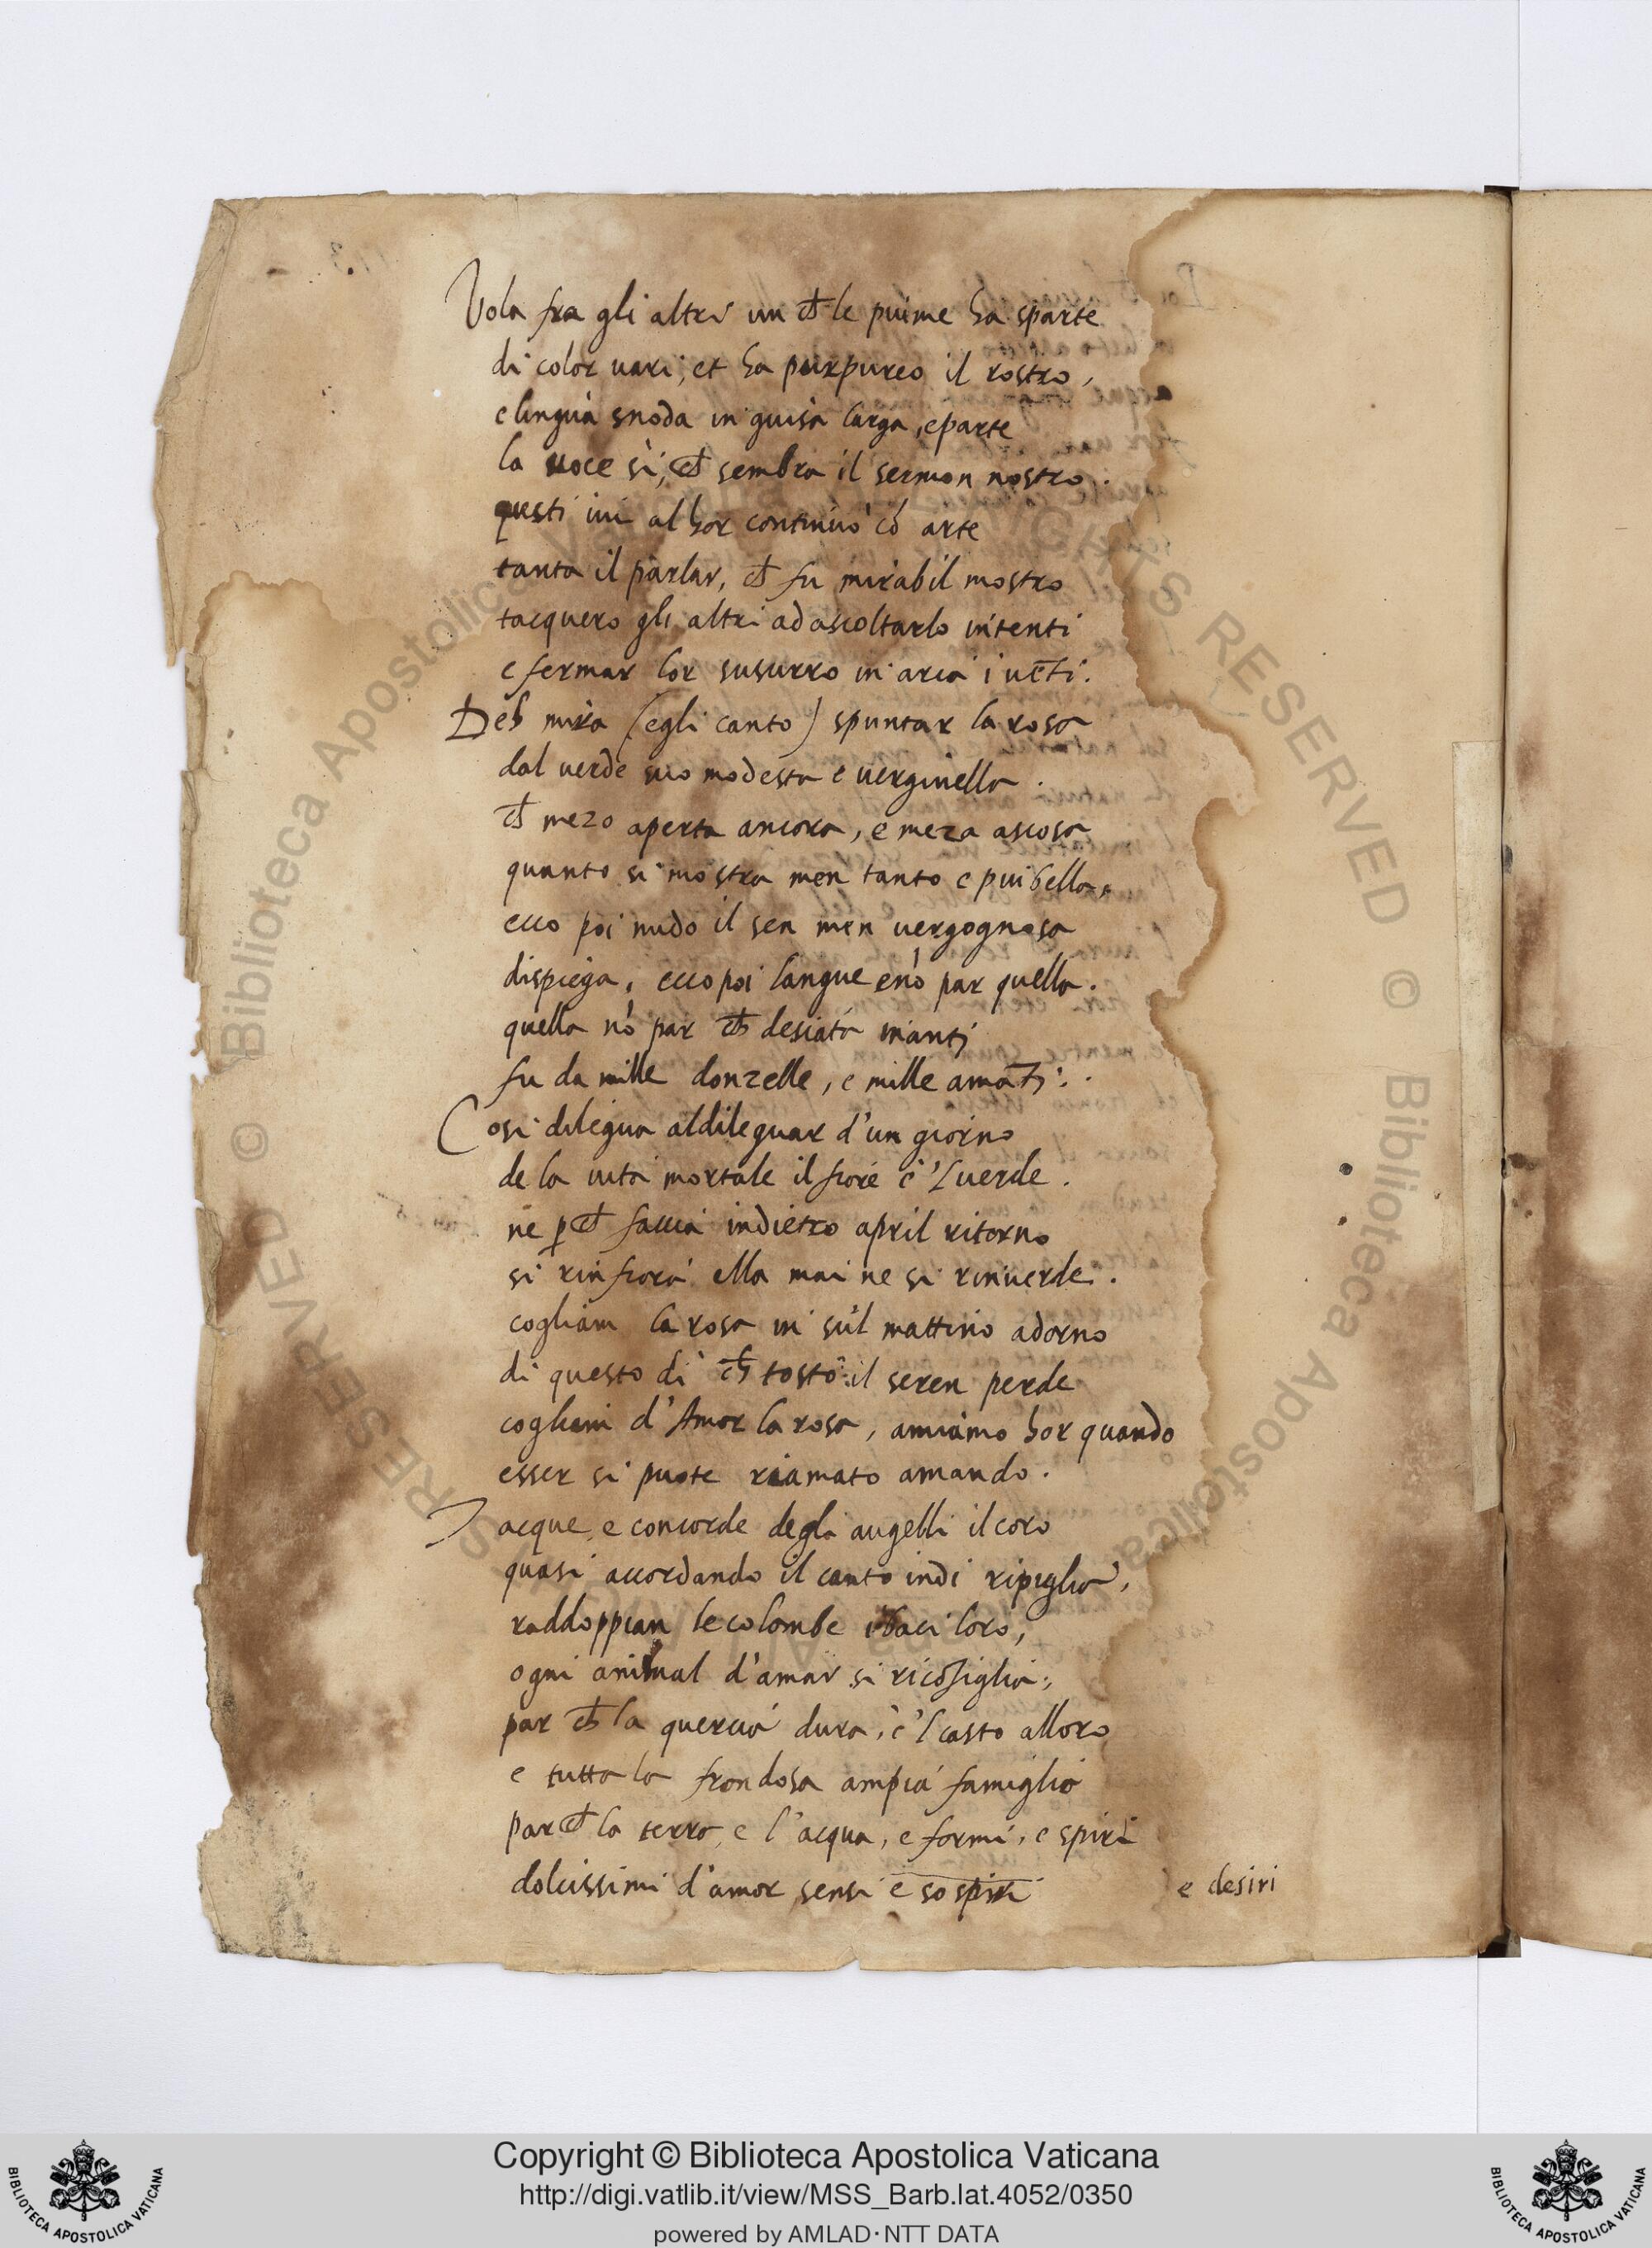 Vola fra gli altri un ch̄ le piume ha sparte
di color uari, et ha purpureo il rostro,
e lingua snoda in guisa larga, e parte
la uoce sì, ch̄ sembra il sermon nostro.
questi iui alhor continuò cō arte
tanta il parlar, ch̄ fu mirabil mostro
tacquero gli altri ad ascoltarlo intenti
e fermar lor susurro in aria i uēti.
Deh mira (egli canto) spuntar la rosa
dal uerde suo modesta e uerginella.
ch̄ mezo aperta ancora, e meza ascosa
quanto si mostra men tanto e piu bella.
ecco poi nudo il sen men uergognosa
dispiega, ecco poi langue e nō par quella.
quella nō par ch̄ desiata inanti
fu da mille donzelle, e mille amāti.
Cosi dilegua al dileguar d'un giorno
de la uita mortale il fiore e 'l uerde.
ne p ch̄ faccia indietro april ritorno
si rinfiora ella mai ne si rinuerde.
cogliam la rosa in sul mattino adorno
di questo dì ch̄ tosto il seren perde
cogliam d'Amor la rosa, amiamo hor quando
esser si puote riamato amando.
Tacque, e concorde degli augelli il coro
quasi accordando il canto indi ripiglia,
raddoppian le colombe i baci loro,
ogni animal d'amar si ricōsiglia,
par ch̄ la quercia dura, e 'l casto alloro
e tutta la frondosa ampia famiglia
par ch̄ la terra, e l'acqua, e formi, e spiri
dolcissimi d'amor sensi e sospiri e desiri
Copyright © Biblioteca Apostolica Vaticana
http://digi.vatlib.it/view/MSS_Barb.lat.4052/0350
powered by AMLAD·NTT DATA
BIBLIOTECA APOSTOLICA VATICANA
BIBLIOTECA APOSTOLICA VATICANA